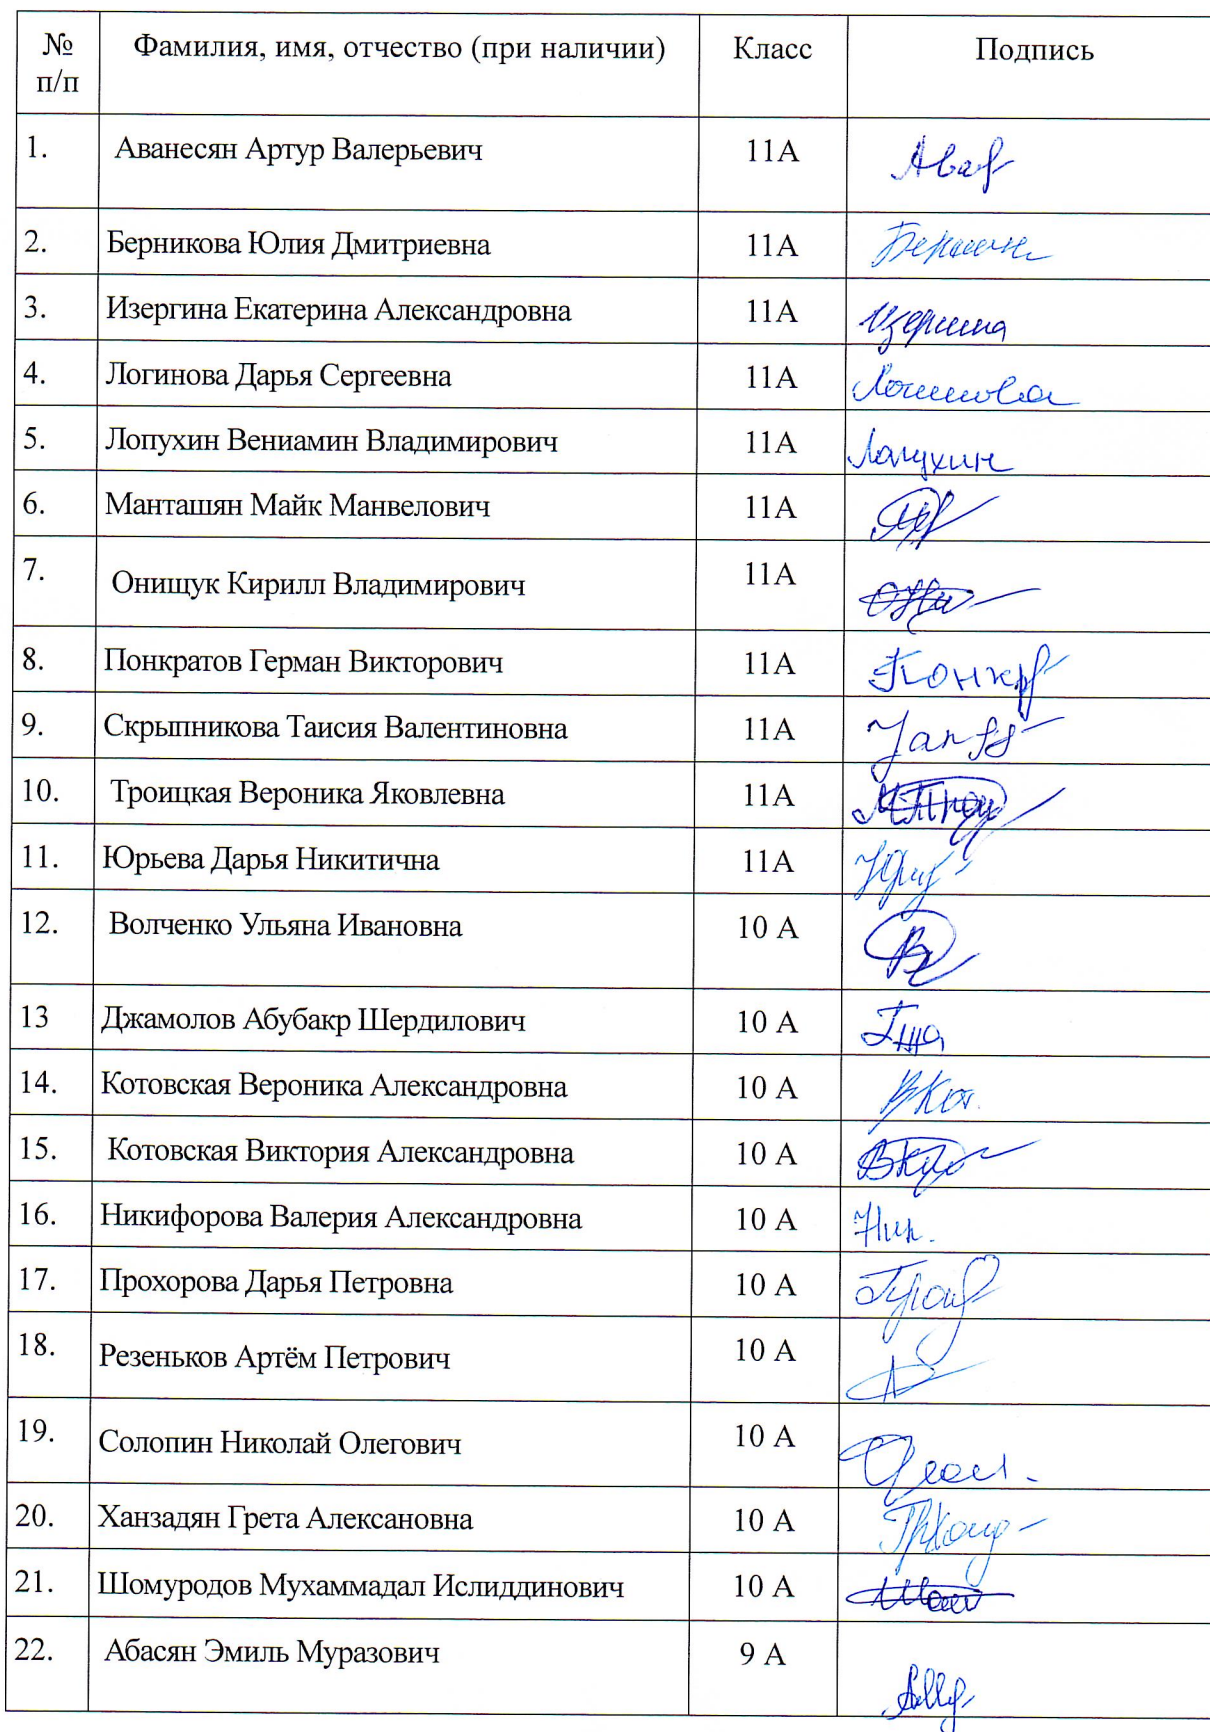 № п/п Фамилия, имя, отчество (при наличии) Класс Подпись
1. Аванесян Артур Валерьевич 11А
2. Берникова Юлия Дмитриевна 11А
3. Изергина Екатерина Александровна 11А
4. Логинова Дарья Сергеевна 11А Логинова
5. Лопухин Вениамин Владимирович 11А Лопухин
6. Манташян Майк Манвелович 11А
7. Онищук Кирилл Владимирович 11А
8. Понкратов Герман Викторович 11А
9. Скрыпникова Таисия Валентиновна 11А
10. Троицкая Вероника Яковлевна 11А
11. Юрьева Дарья Никитична 11А
12. Волченко Ульяна Ивановна 10 А
13 Джамолов Абубакр Шердилович 10 А
14. Котовская Вероника Александровна 10 А ВКот.
15. Котовская Виктория Александровна 10 А
16. Никифорова Валерия Александровна 10 А
17. Прохорова Дарья Петровна 10 А
18. Резеньков Артём Петрович 10 А
19. Солопин Николай Олегович 10 А
20. Ханзадян Грета Алексановна 10 А
21. Шомуродов Мухаммадал Ислиддинович 10 А
22. Абасян Эмиль Муразович 9 А